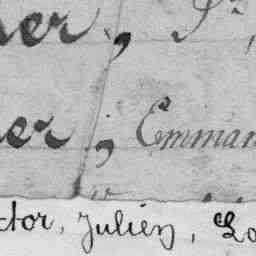 ner, Sr,
ner, Emman
ctor, Julien, Lo